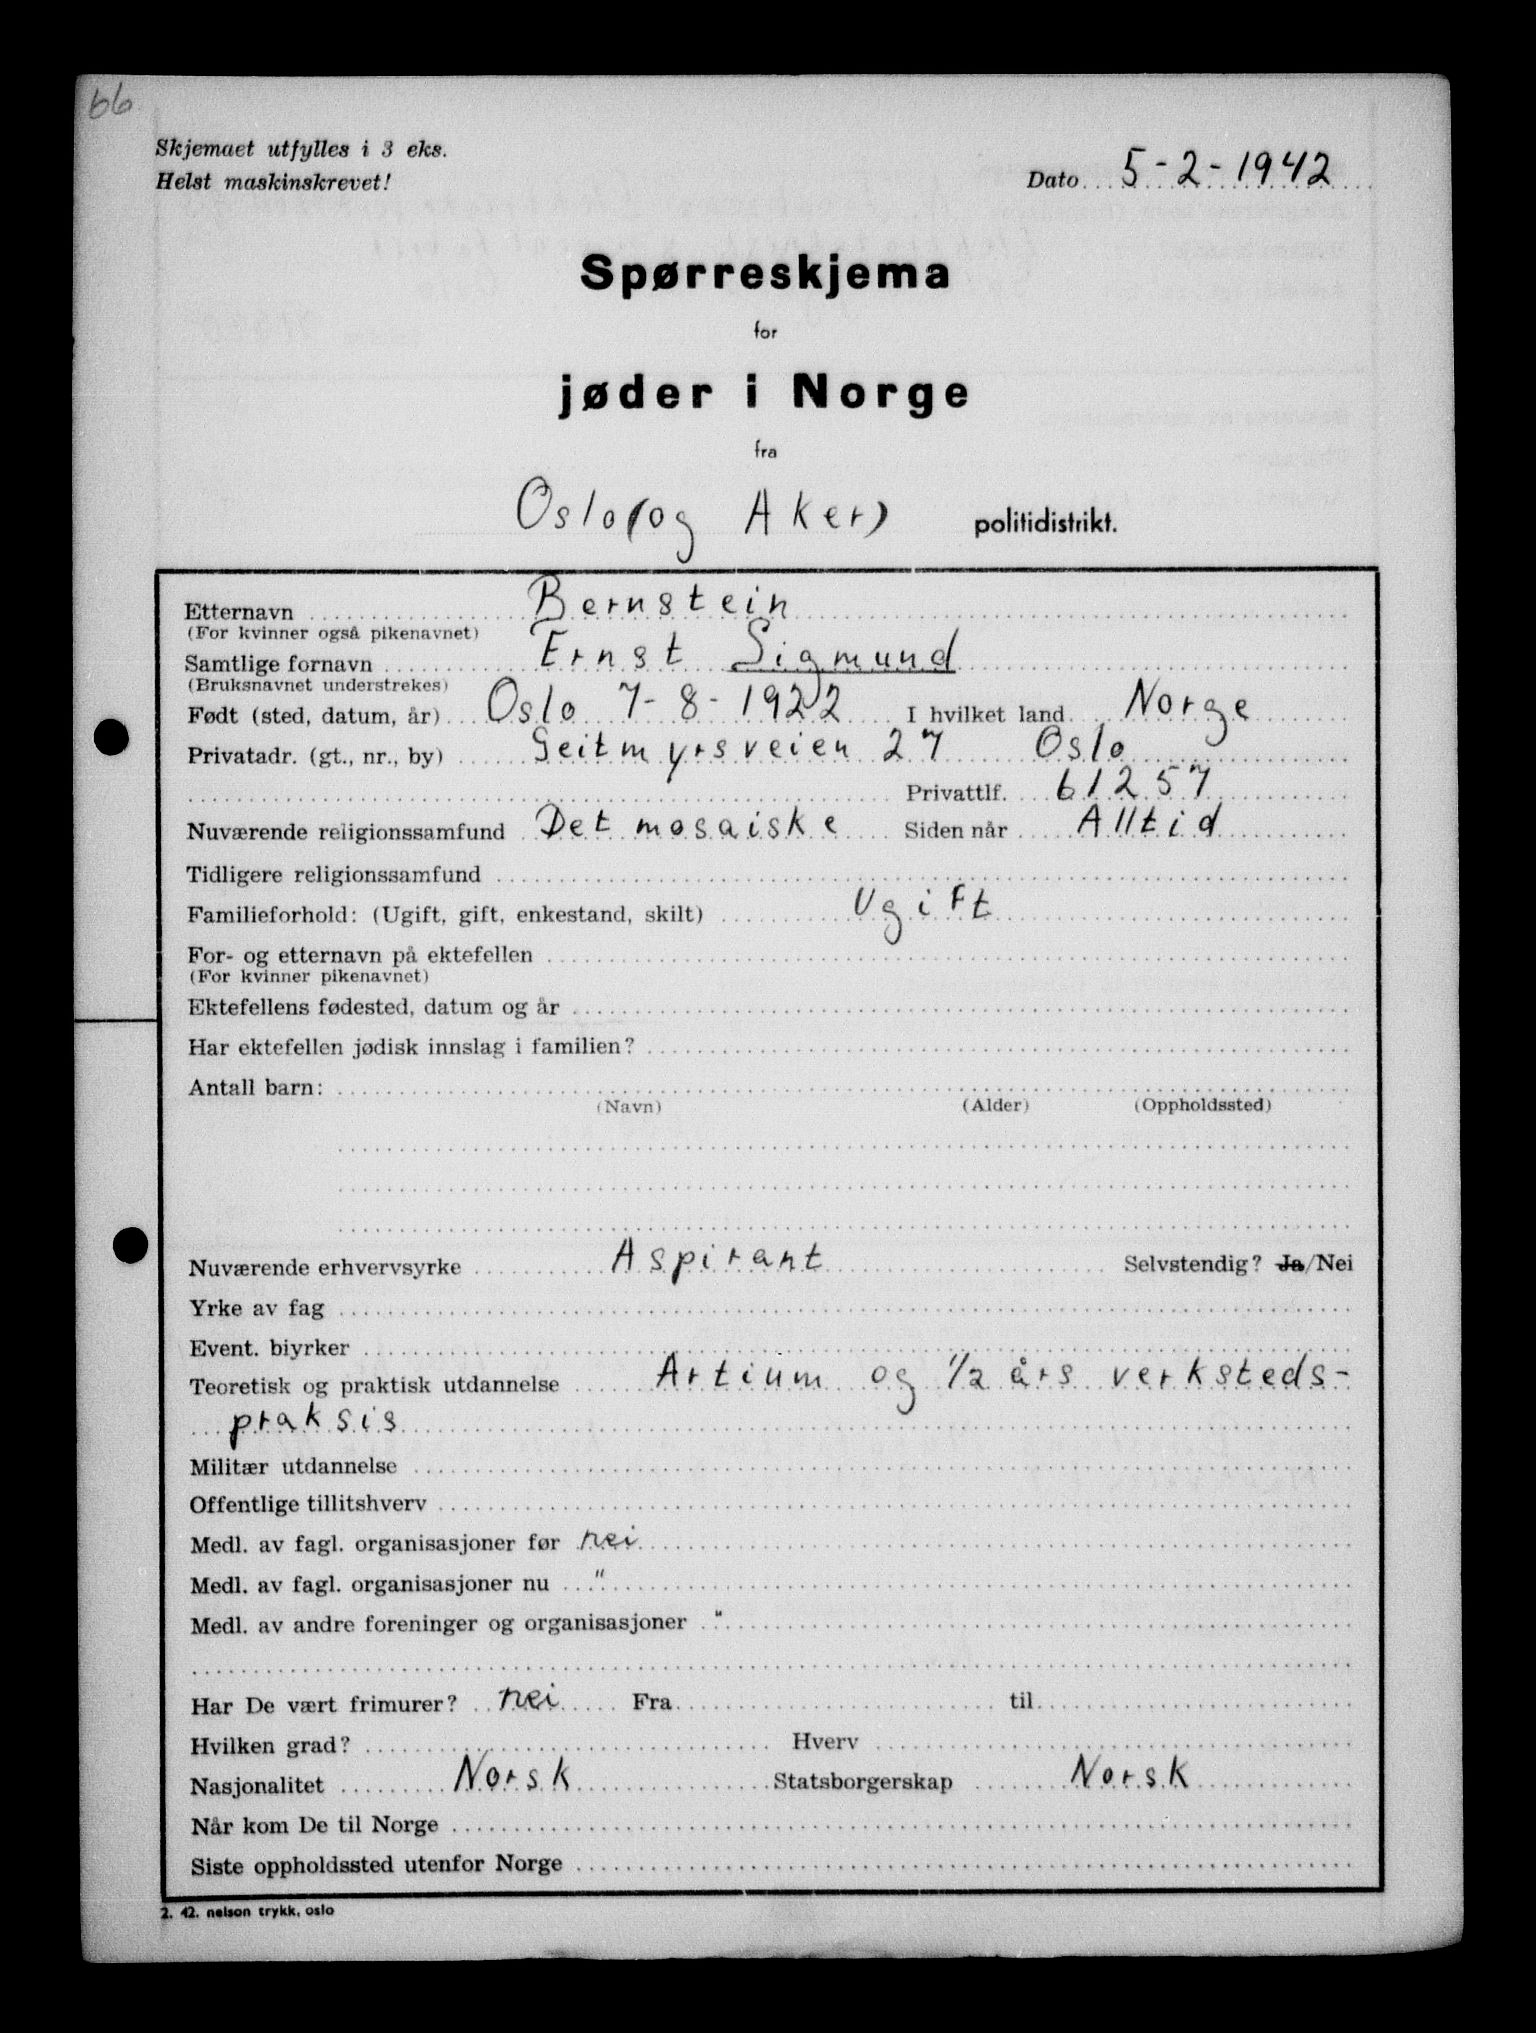 66
Skjemaet utfylles i 3 eks.
Helst maskinskrevet!
Dato 5-2-1942
Spørreskjema
for
jøder i Norge
fra
Oslo (og Aker) politidistrikt.
Etternavn Bernstein
(For kvinner også pikenavnet)
Samtlige fornavn Ernst Sigmund
(Bruksnavnet understrekes)
Født (sted, datum, år) Oslo 7-8-1922 I hvilket land Norge
Privatadr. (gt., nr., by) Geitmyrsveien 27 Oslo
Privattlf. 61257
Nuværende religionssamfund Det mosaiske Siden når Alltid
Tidligere religionssamfund
Familieforhold: (Ugift, gift, enkestand, skilt) Ugift
For- og etternavn på ektefellen
(For kvinner pikenavnet)
Ektefellens fødested, datum og år
Har ektefellen jødisk innslag i familien?
Antall barn:
(Navn) (Alder) (Oppholdssted)
Nuværende erhvervsyrke Aspirant Selvstendig? Ja/Nei
Yrke av fag
Event. biyrker
Teoretisk og praktisk utdannelse Artium og 1/2 års verksteds-
praksis
Militær utdannelse
Offentlige tillitshverv
Medl. av fagl. organisasjoner før nei
Medl. av fagl. organisasjoner nu "
Medl. av andre foreninger og organisasjoner "
Har De vært frimurer? nei Fra til
Hvilken grad? Hverv
Nasjonalitet Norsk Statsborgerskap Norsk
Når kom De til Norge
Siste oppholdssted utenfor Norge
2. 42. nelson trykk, oslo